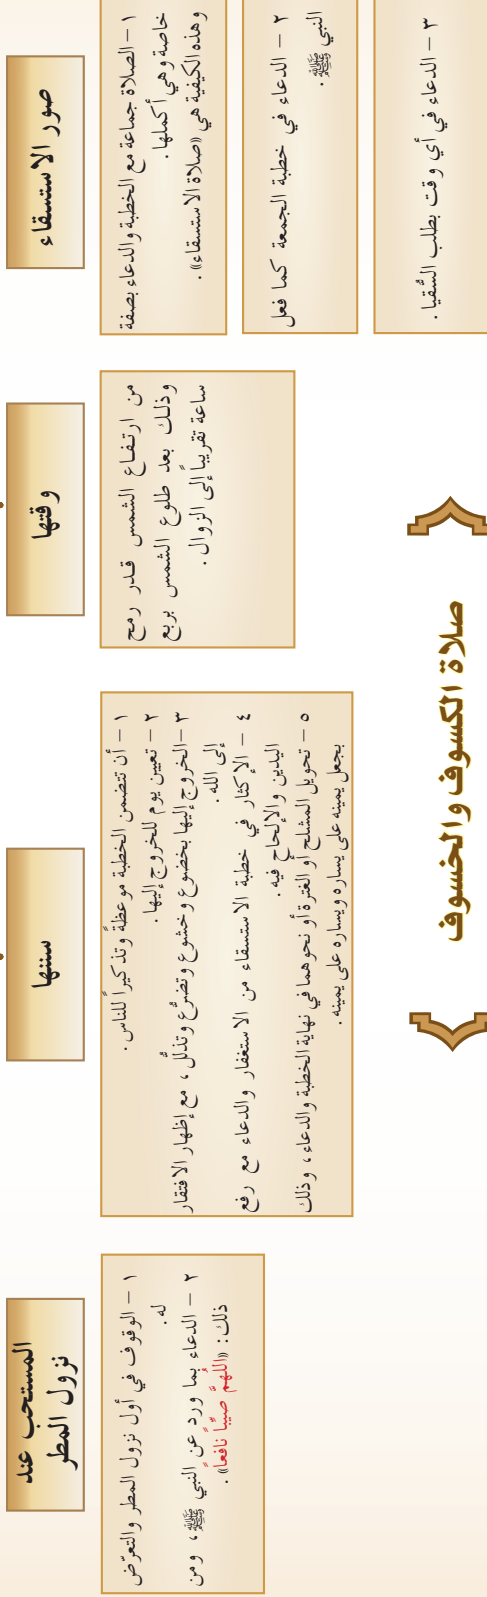 صور الاستسقاء
١ – الصلاة جماعة مع الخطبة والدعاء بصفة
خاصة وهي أكملها .
وهذه الكيفية هي «صلاة الاستسقاء» .
٢ – الدعاء في خطبة الجمعة كما فعل
النبي ﷺ .
٣ – الدعاء في أي وقت بطلب السُّقيا .
وقتها
من ارتفاع الشمس قدر رمح
وذلك بعد طلوع الشمس بربع
ساعة تقريباً إلى الزوال .
سننها
١ – أن تتضمن الخطبة موعظةً وتذكيراً للناس .
٢ – تعيين يوم للخروج إليها .
٣ –الخروج إليها بخضوع وخشوع وتضرُّع وتذلُّل ، مع إظهار الافتقار
إلى الله .
٤ – الإكثار في خطبة الاستسقاء من الاستغفار والدعاء مع رفع
اليدين والإلحاح فيه .
٥ – تحويل المشلح أو الغترة أو نحوهما في نهاية الخطبة والدعاء ، وذلك
بجعل يمينه على يساره ويساره على يمينه .
المستحب عند
نزول المطر
١ – الوقوف في أول نزول المطر والتعرّض
له .
٢ – الدعاء بما ورد عن النبي ﷺ ، ومن
ذلك : «اللهمَّ صيِّباً نافعاً» .
صلاة الكسوف والخسوف